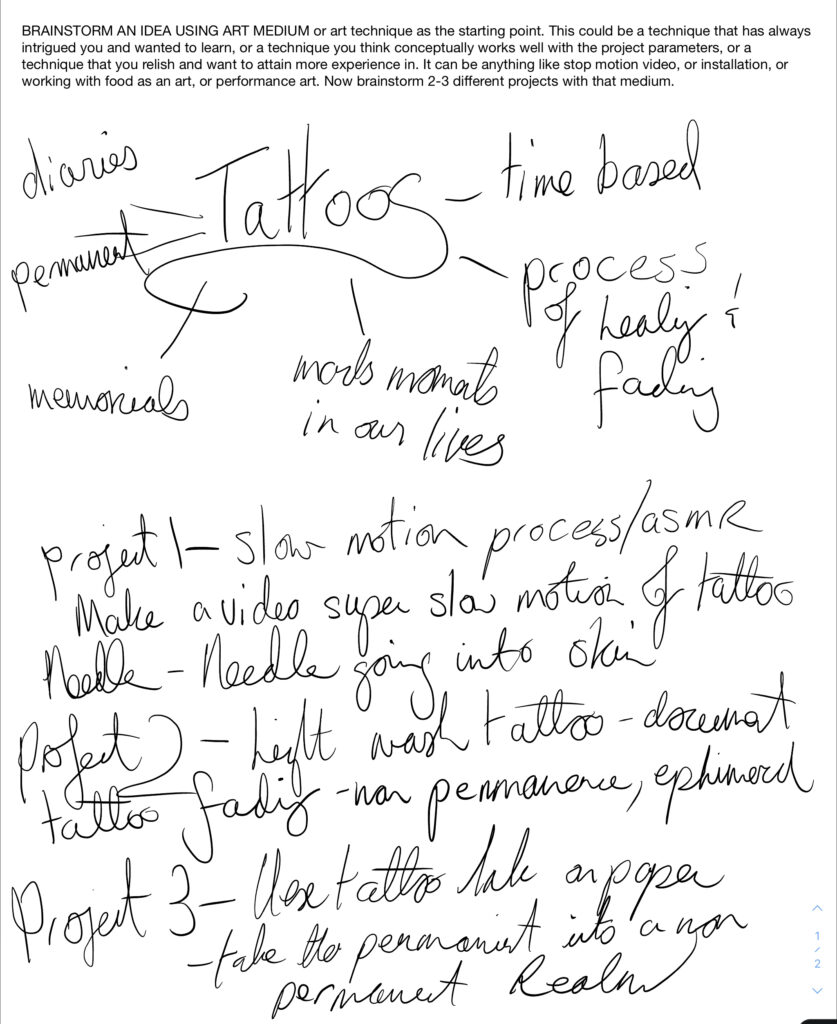 BRAINSTORM AN IDEA USING ART MEDIUM or art technique as the starting point. This could be a technique that has always
intrigued you and wanted to learn, or a technique you think conceptually works well with the project parameters, or a
technique that you relish and want to attain more experience in. It can be anything like stop motion video, or installation, or
working with food as an art, or performance art. Now brainstorm 2-3 different projects with that medium.
diaries
Tattoos - time based
permanent
process
of healing &
fading
memorials
marks moments
in our lives
Project 1 - slow motion process/asmR
Make a video super slow motion of tattoo
Needle - Needle going into skin
Project 2 - light wash tattoo - document
tattoo fading - non permanence, ephimeral
Project 3 - Use tattoo Ink on paper
- take the permanent into a non
permanent Realm
1
/
2